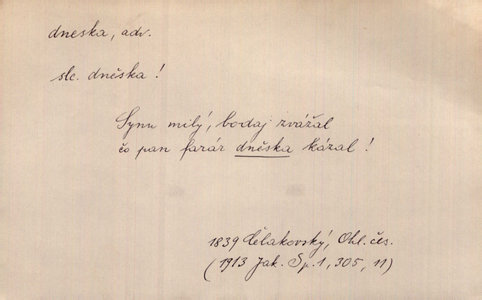 dneska, adv.
slc. dněska!
Synu milý, bodaj zvážal
čo pan farár dněska kázal!
1839 Čelakovský, Ohl. čes.
(1913 Jak. Sp. 1, 305, 11)